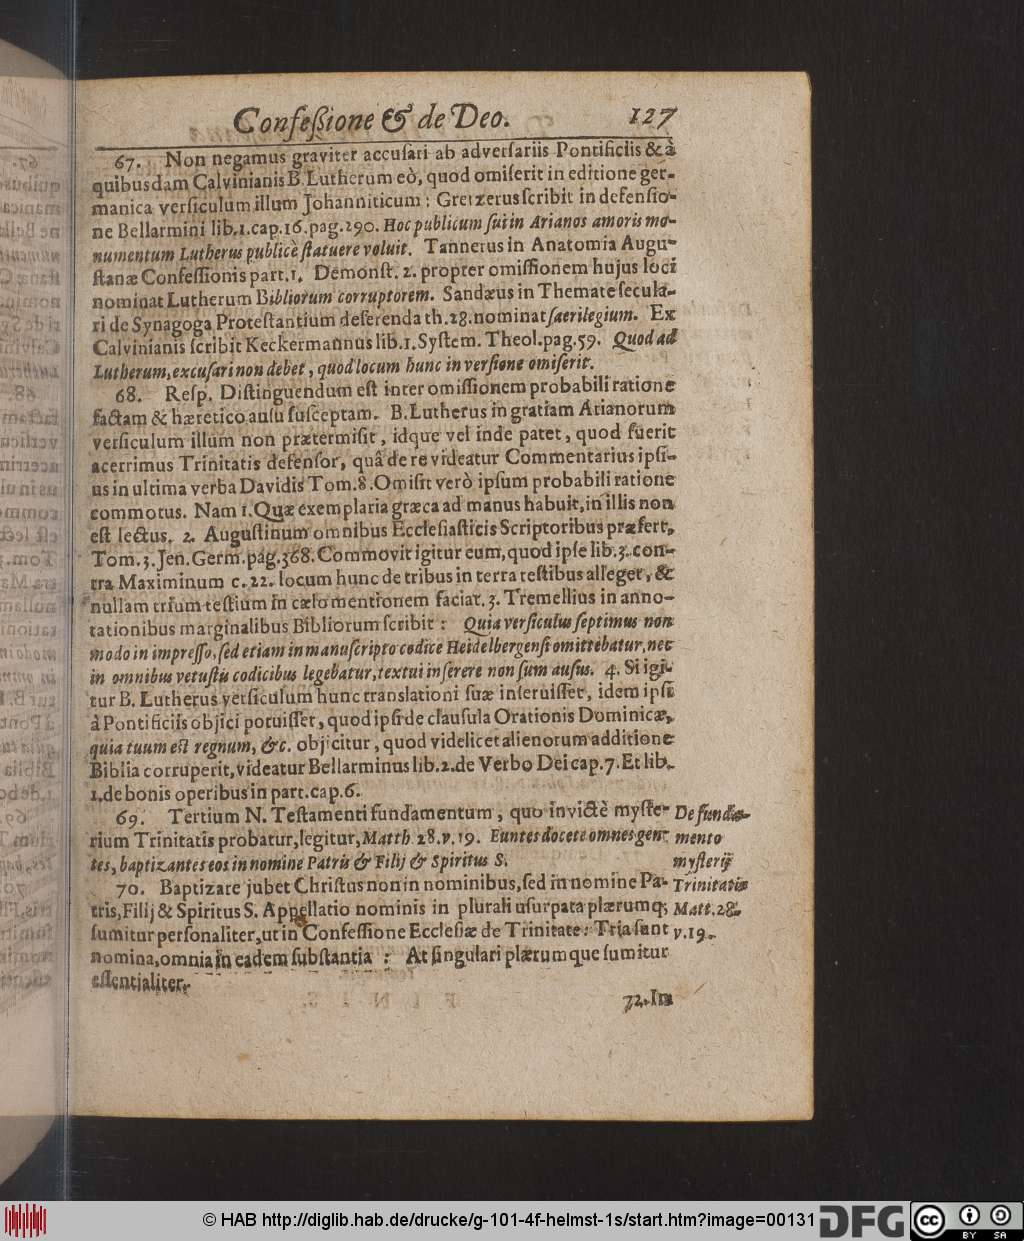 Confeßione & de Deo. 127
67. Non negamus graviter accuſari ab adverſariis Pontificiis & à
quibusdam Calvinianis B. Lutherum eò, quod omiſerit in editione ger-
manica verſiculum illum Johanniticum: Gretzerus ſcribit in defenſio-
ne Bellarmini lib. 1. cap. 16. pag. 290. Hoc publicum ſui in Arianos amoris mo-
numentum Lutherus publicè ſtatuere voluit. Tannerus in Anatomia Augu-
ſtanæ Confeſſionis part. 1. Demonſt. 2. propter omiſſionem hujus loci
nominat Lutherum Bibliorum corruptorem. Sandæus in Themate ſecula-
ri de Synagoga Proteſtantium deſerenda th. 28. nominat ſacrilegium. Ex
Calvinianis ſcribit Keckermannus lib. 1. Syſtem. Theol. pag. 59. Quod ad
Lutherum, excuſari non debet, quod locum hunc in verſione omiſerit.
68. Reſp. Diſtinguendum eſt inter omiſſionem probabili ratione
factam & hæretico auſu ſuſceptam. B. Lutherus in gratiam Arianorum
verſiculum illum non prætermiſit, idque vel inde patet, quod fuerit
acerrimus Trinitatis defenſor, quâ de re videatur Commentarius ipſi-
us in ultima verba Davidis Tom. 8. Omiſit verò ipſum probabili ratione
commotus. Nam 1. Quæ exemplaria græca ad manus habuit, in illis non
eſt lectus. 2. Auguſtinum omnibus Eccleſiaſticis Scriptoribus præfert,
Tom. 3. Jen. Germ. pag. 368. Commovit igitur eum, quod ipſe lib. 3. con-
tra Maximinum c. 22. locum hunc de tribus in terra teſtibus alleget, &
nullam trium teſtium in cælo mentionem faciat. 3. Tremellius in anno-
tationibus marginalibus Bibliorum ſcribit: Quia verſiculus ſeptimus non
modo in impreſſo, ſed etiam in manuſcripto codice Heidelbergenſi omittebatur, nec
in omnibus vetuſtis codicibus legebatur, textui inſerere non ſum auſus. 4. Si igi-
tur B. Lutherus verſiculum hunc translationi ſuæ inſeruiſſet, idem ipſi
à Pontificiis objici potuiſſet, quod ipſi de clauſula Orationis Dominicæ,
quia tuum eſt regnum, &c. objicitur, quod videlicet alienorum additione
Biblia corruperit, videatur Bellarminus lib. 2. de Verbo Dei cap. 7. Et lib.
1. de bonis operibus in part. cap. 6.
69. Tertium N. Teſtamenti fundamentum, quo invictè myſte-
rium Trinitatis probatur, legitur, Matth. 28. v. 19. Euntes docete omnes gen-
tes, baptizantes eos in nomine Patris & Filij & Spiritus S.
De funda-
mento
myſterij
Trinitatis
Matt. 28.
v. 19.
70. Baptizare jubet Chriſtus non in nominibus, ſed in nomine Pa-
tris, Filij & Spiritus S. Appellatio nominis in plurali uſurpata plærumq;
ſumitur perſonaliter, ut in Confeſſione Eccleſiæ de Trinitate: Tria ſunt
nomina, omnia in eadem ſubſtantia: At ſingulari plærumque ſumitur
eſſentialiter.
72. Im
© HAB http://diglib.hab.de/drucke/g-101-4f-helmst-1s/start.htm?image=00131
DFG
cc BY SA